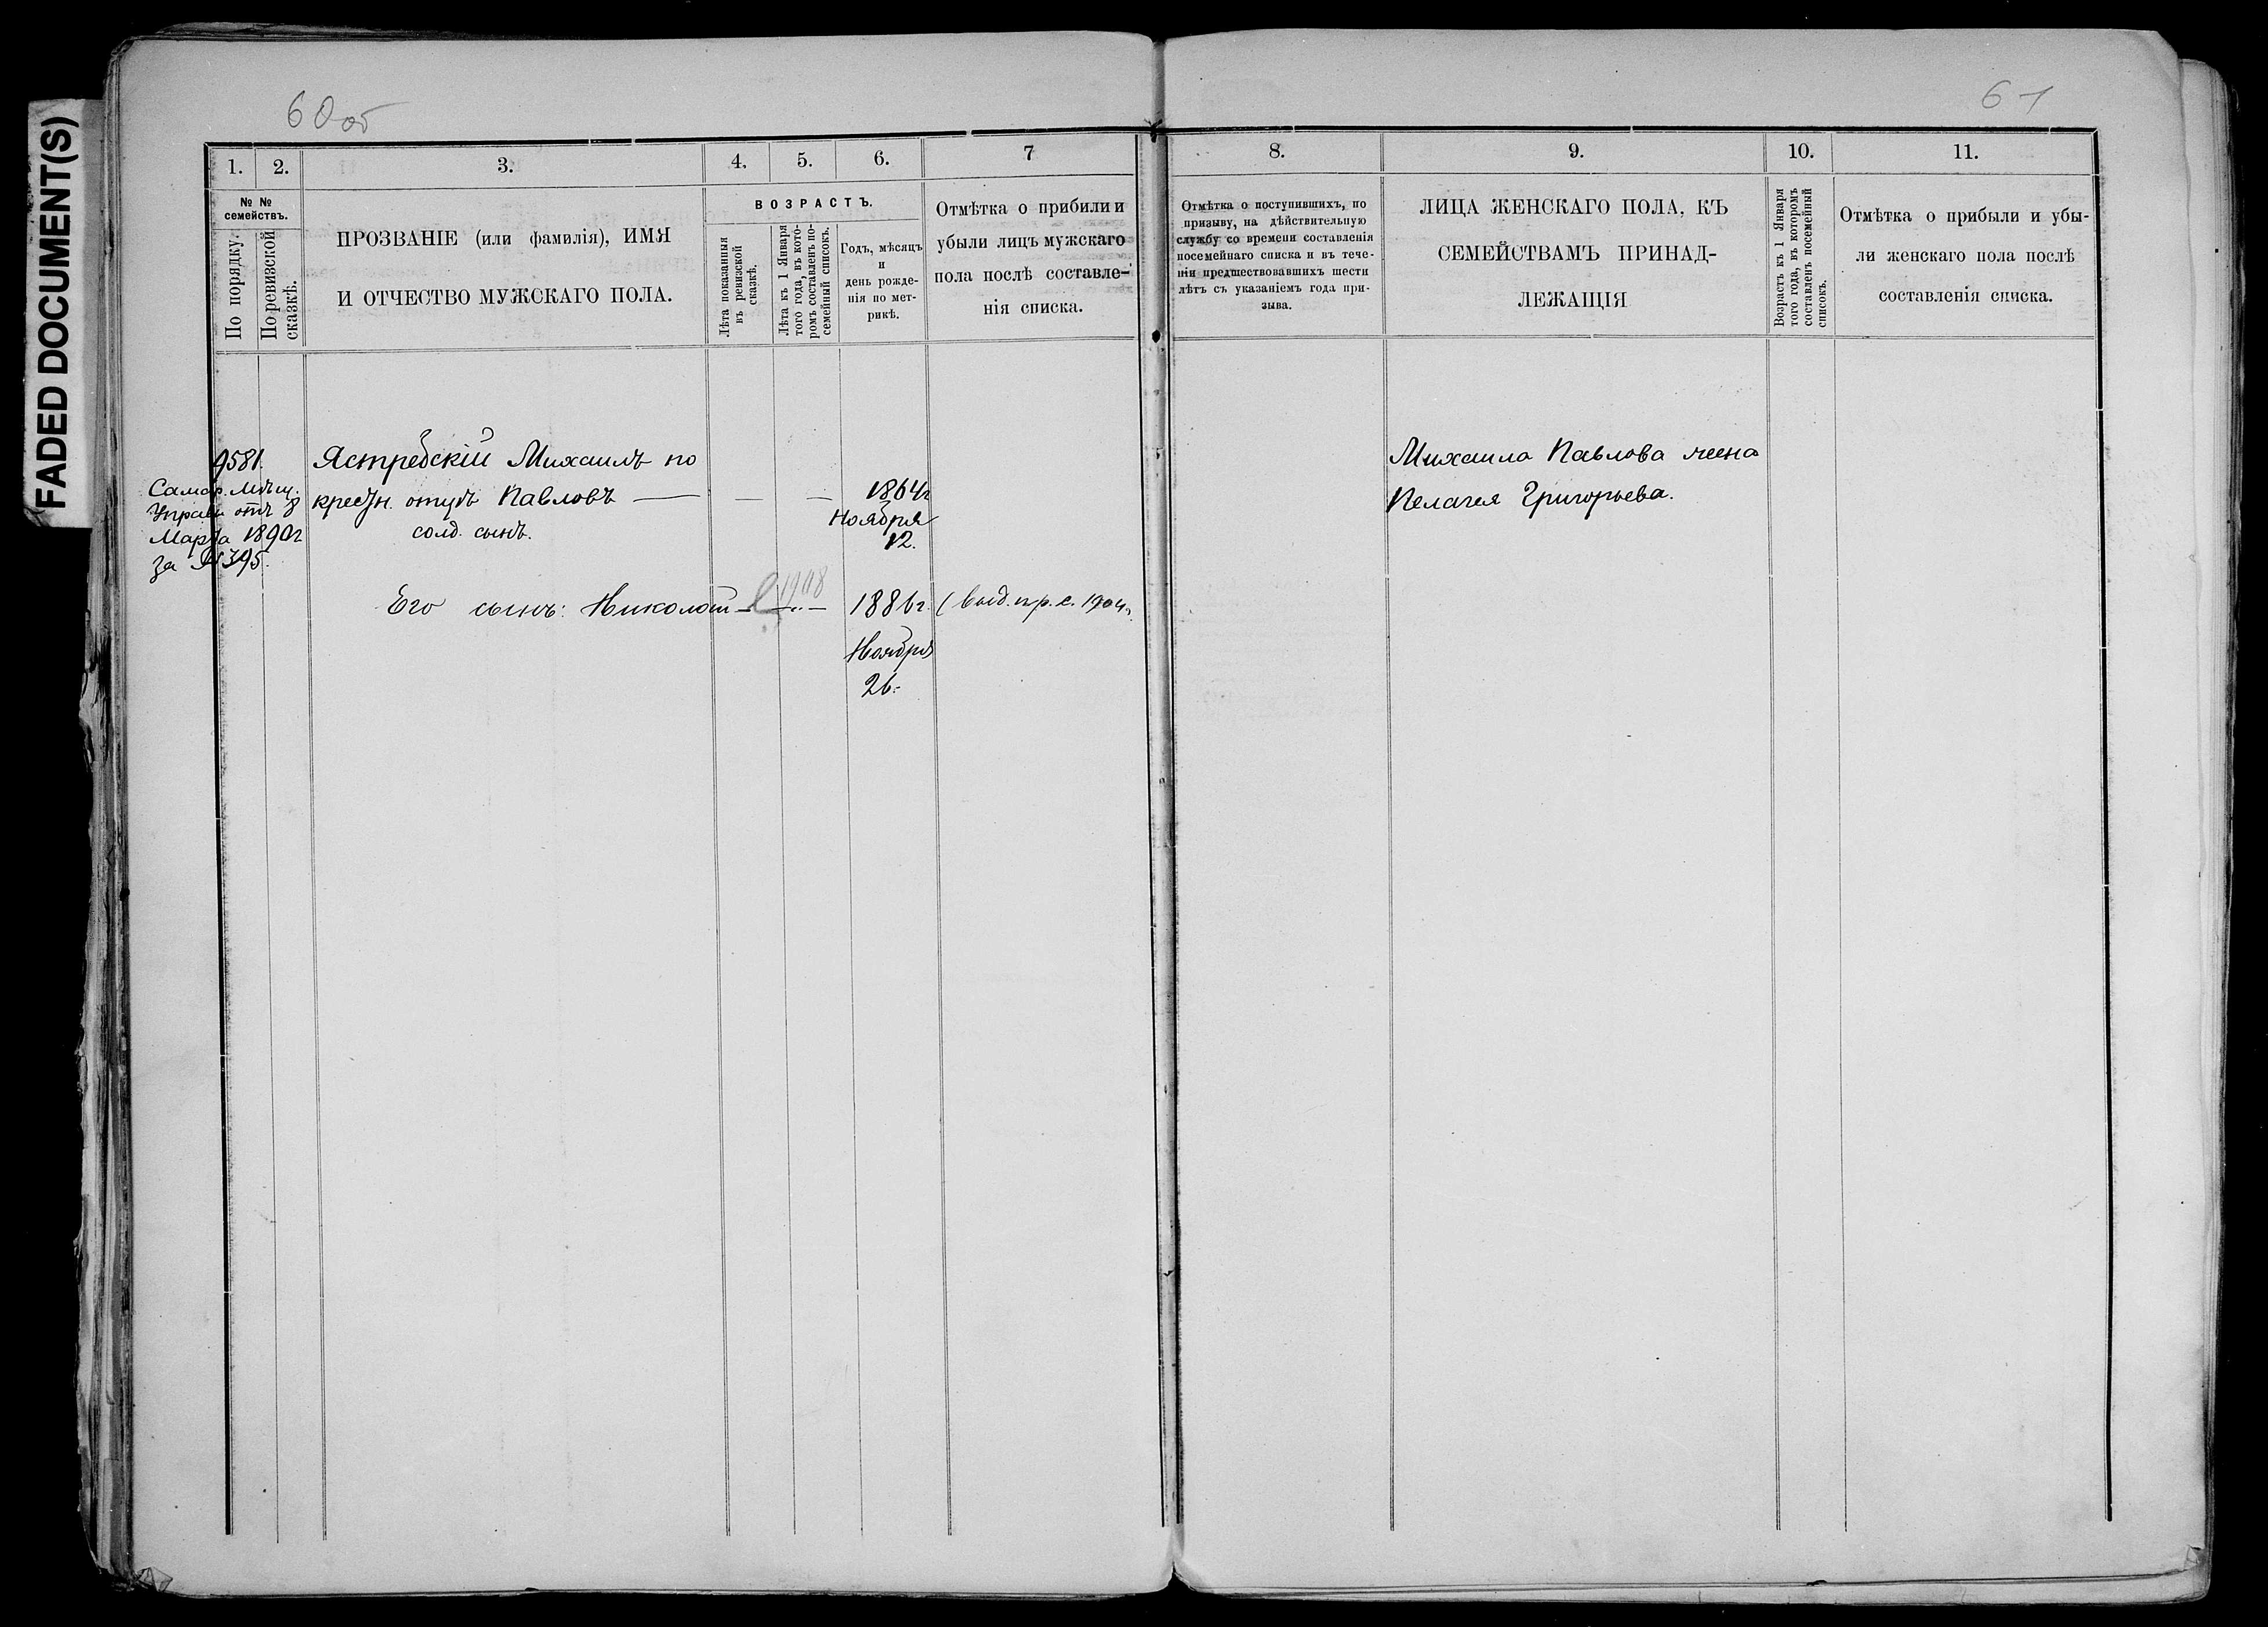 FADED DOCUMENT(S)
60об
61
1. 2. 3. 4. 5. 6. 7
№ №
семействъ.
По порядку.
По ревизской
сказкѣ.
ПРОЗВАНІЕ (или фамилія), ИМЯ
И ОТЧЕСТВО МУЖСКАГО ПОЛА.
ВОЗРАСТЪ.
Лѣта показанныя
въ ревизской
сказкѣ.
Лѣта къ 1 Января
того года, въ кото-
ромъ составленъ по-
семейный списокъ.
Годъ, мѣсяцъ
и
день рожде-
нія по мет-
рикѣ.
Отмѣтка о прибыли и
убыли лицъ мужскаго
пола послѣ составле-
нія списка.
8. 9. 10. 11.
Отмѣтка о поступившихъ, по
призыву, на дѣйствительную
службу со времени составленія
посемейнаго списка и въ тече-
ніи предшествовавшихъ шести
лѣтъ съ указаніемъ года при-
зыва.
ЛИЦА ЖЕНСКАГО ПОЛА, КЪ
СЕМЕЙСТВАМЪ ПРИНАД-
ЛЕЖАЩІЯ
Возрастъ къ 1 Января
того года, въ которомъ
составленъ посемейный
списокъ.
Отмѣтка о прибыли и убы-
ли женскаго пола послѣ
составленія списка.
9581.
Самар. Мѣщ.
Управы отъ 8
Марта 1890г
за №395.
Ястребскій Михаилъ по
крестн. отцу Павловъ — — —
солд. сынъ.
1864г
Ноября
12.
Его сынъ: Николай — 1908 —
1886г.
Ноября
26.
(выд. пр. с. 1904г.
Михаила Павлова жена
Пелагея Григорьева.